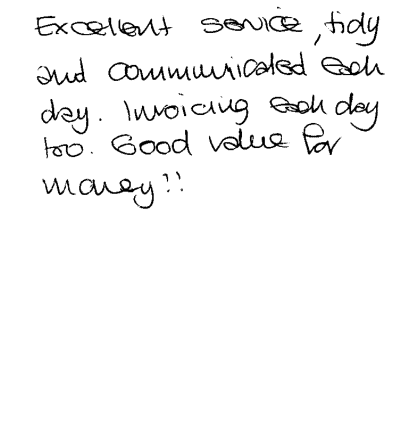 Excellent service, tidy
and communicated each
day. Invoicing each day
too. Good value for
money!!